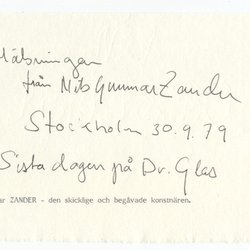 Hälsningar
från Nils Gunnar Zander
Stockholm 30.9.79
Sista dagen på Dr. Glas
ar ZANDER - den skicklige och begåvade konstnären.